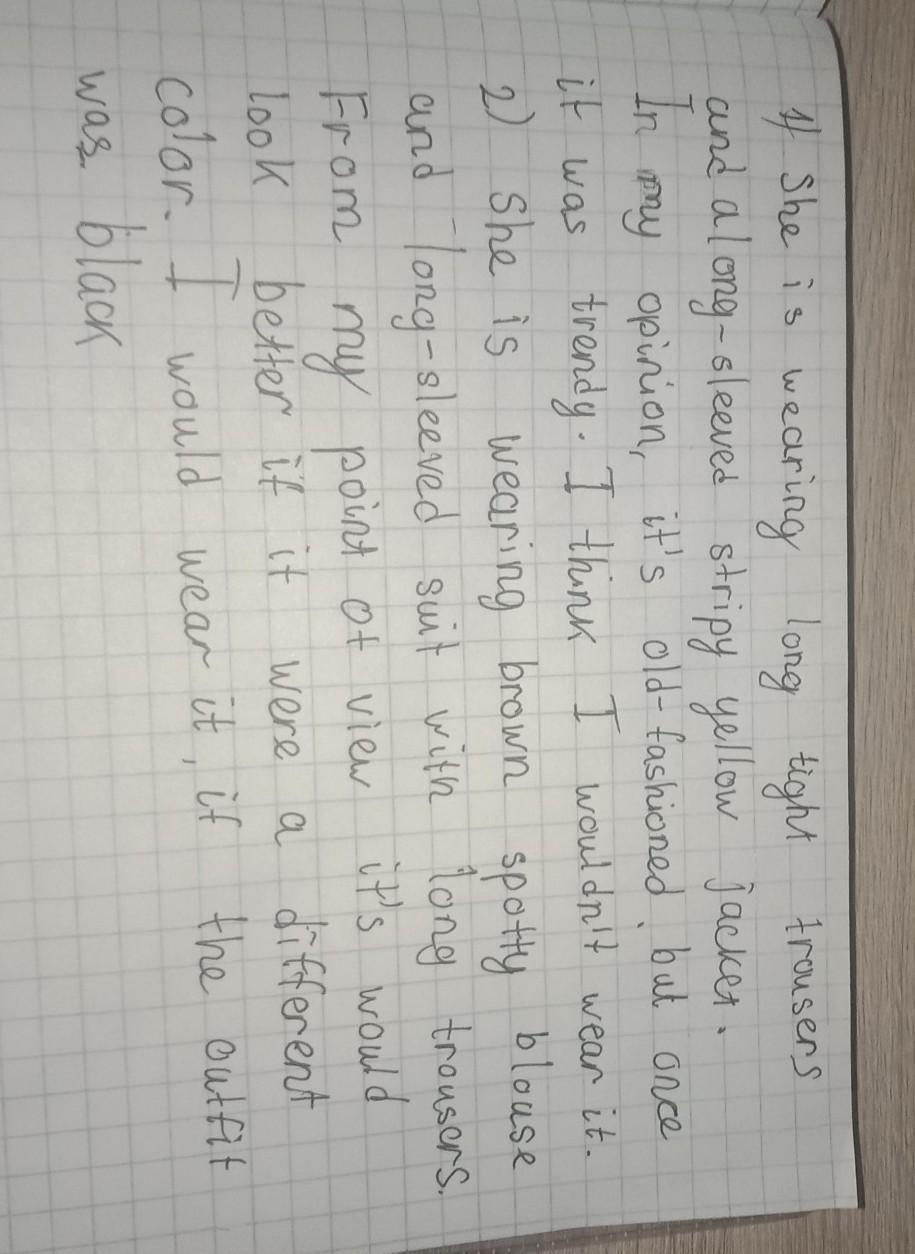 1) She is wearing long tight trousers
and a long-sleeved stripy yellow jacket.
In my opinion, it's old-fashioned, but once
it was trendy. I think I wouldn't wear it.
2) She is wearing brown spotty blouse
and long-sleeved suit with long trousers.
From my point of view it's would
look better if it were a different
color. I would wear it, if the outfit
was black